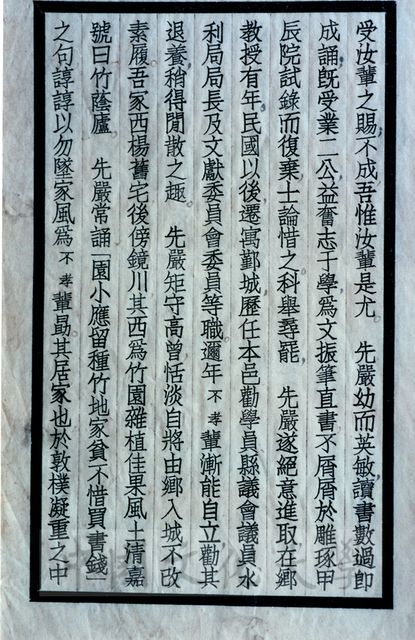 受汝輩之賜不成吾惟汝輩是尤　先嚴幼而英敏讀書數過即
成誦既受業二公益奮志于學爲文振筆直書不屑屑於雕琢甲
辰院試錄而復棄士論惜之科舉尋罷　先嚴遂絕意進取在鄉
教授有年民國以後遷寓鄞城歷任本邑勸學員縣議會議員水
利局局長及文獻委員會委員等職邇年不孝輩漸能自立勸其
退養稍得閒散之趣　先嚴矩守高曾恬淡自將由鄉入城不改
素履吾家西楊舊宅後傍鏡川其西爲竹園雜植佳果風土清嘉
號曰竹蔭廬　先嚴常誦「園小應留種竹地家貧不惜買書錢」
之句諄諄以勿墜家風爲不孝輩勗其居家也於敦樸凝重之中